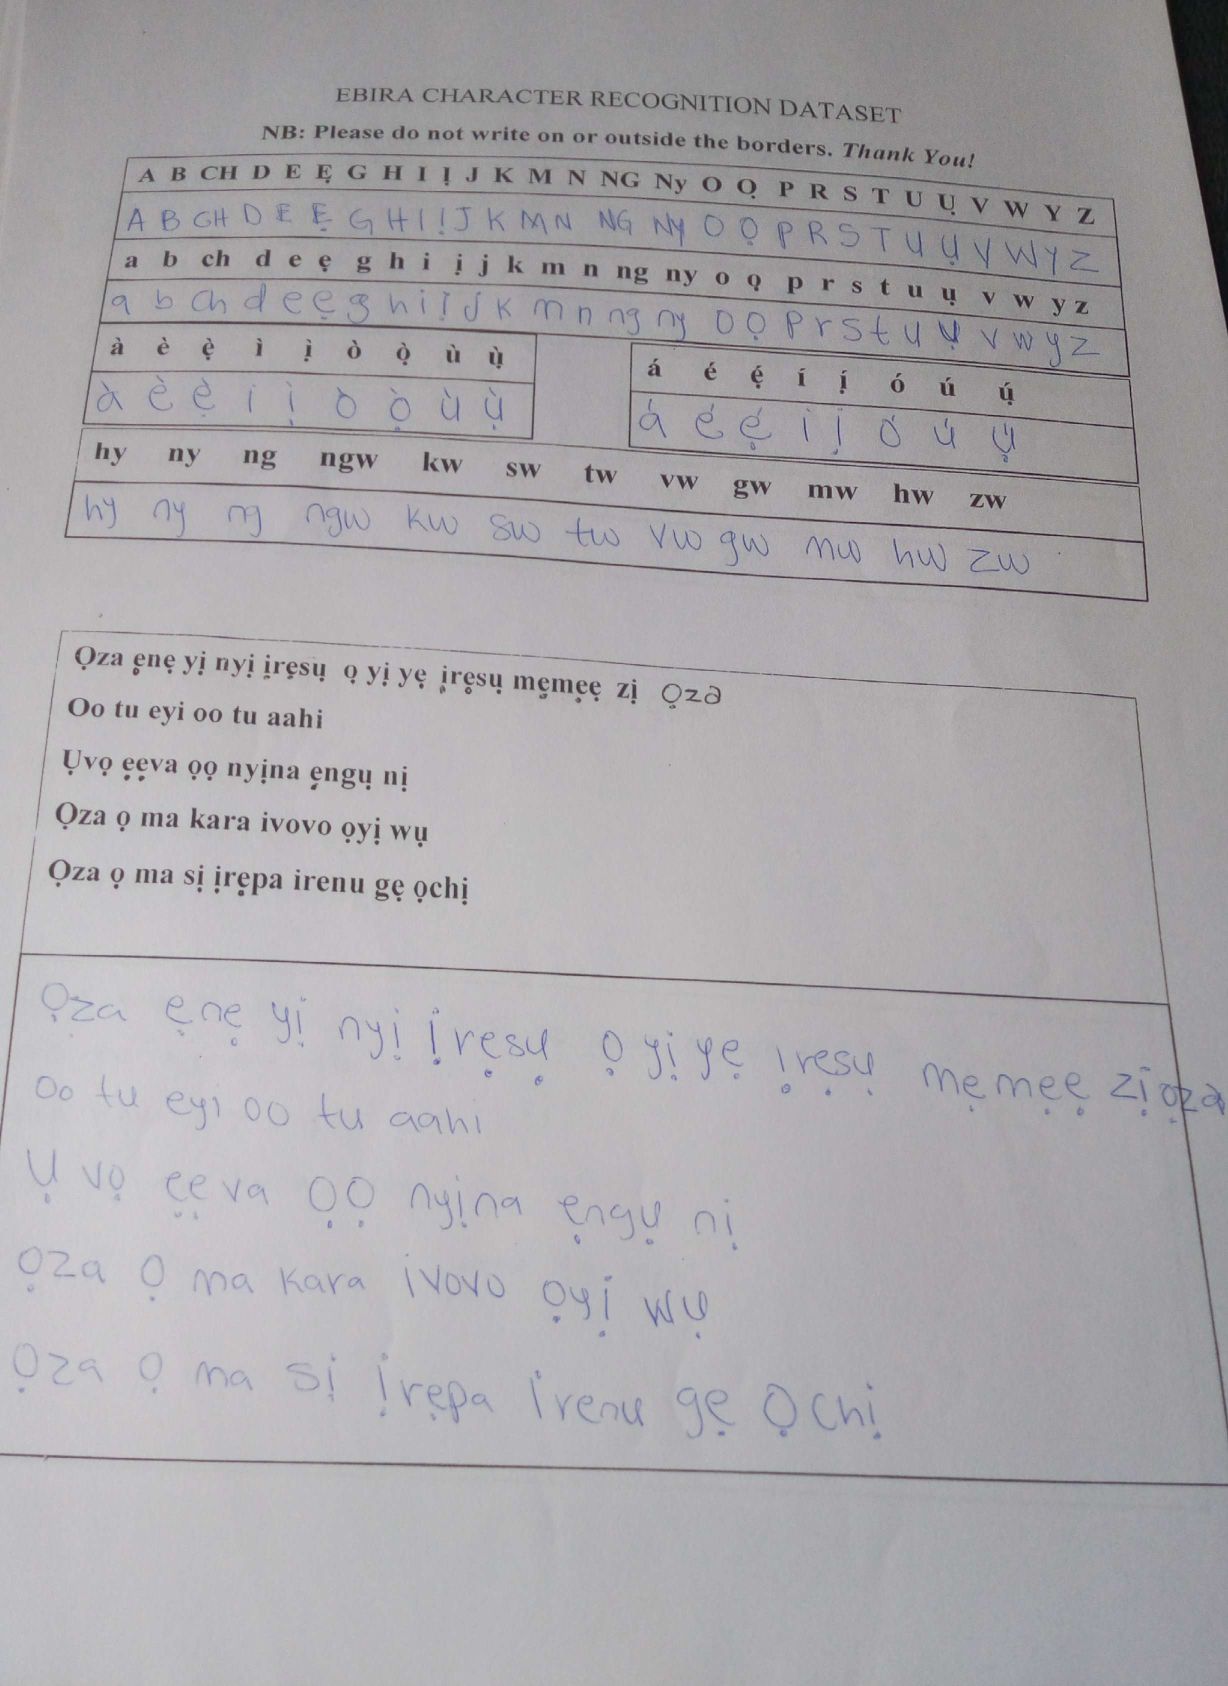 EBIRA CHARACTER RECOGNITION DATASET
NB: Please do not write on or outside the borders. Thank You!
A B CH D E Ẹ G H I Ị J K M N NG Ny O Ọ P R S T U Ụ V W Y Z
A B CH D E Ẹ G H I Ị J K M N NG Ny O Ọ P R S T U Ụ V W Y Z
a b ch d e ẹ g h i ị j k m n ng ny o ọ p r s t u ụ v w y z
a b ch d e ẹ g h i ị j k m n ng ny o ọ p r s t u ụ v w y z
à è ẹ̀ ì ị̀ ò ọ̀ ù ụ̀
à è ẹ̀ ì ị̀ ò ọ̀ ù ụ̀
á é ẹ́ í ị́ ó ú ụ́
á é ẹ́ í ị́ ó ú ụ́
hy ny ng ngw kw sw tw vw gw mw hw zw
hy ny ng ngw kw sw tw vw gw mw hw zw
Ọza ẹnẹ yị nyị ịrẹsụ ọ yị yẹ ịrẹsụ mẹmẹẹ zị ọza
Oo tu eyi oo tu aahi
Ụvọ ẹẹva ọọ nyịna ẹngụ nị
Ọza ọ ma kara ivovo ọyị wụ
Ọza ọ ma sị ịrẹpa irenu gẹ ọchị
Ọza ẹnẹ yị nyị ịrẹsụ ọ yị yẹ ịrẹsụ mẹmẹẹ zị ọza
Oo tu eyi oo tu aahi
Ụ vọ ẹẹ va ọọ nyịna ẹngụ nị
Ọza ọ ma kara ivovo ọyị wụ
Ọza ọ ma sị ịrẹpa irenu gẹ ọchị